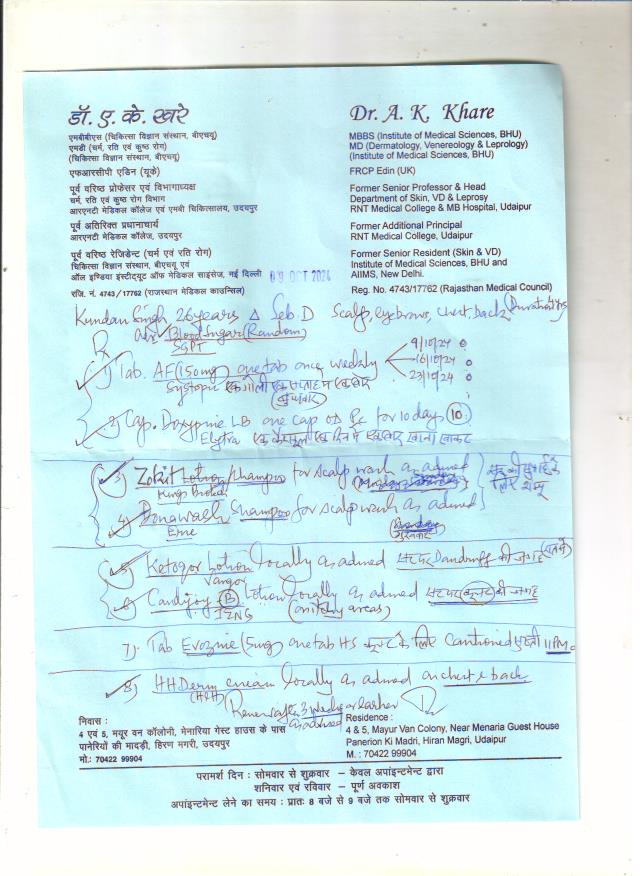 डॉ. ए. के. खरे
एमबीबीएस (चिकित्सा विज्ञान संस्थान, बीएचयू)
एमडी (चर्म, रति एवं कुष्ठ रोग)
(चिकित्सा विज्ञान संस्थान, बीएचयू)
एफआरसीपी एडिन (यूके)
पूर्व वरिष्ठ प्रोफेसर एवं विभागाध्यक्ष
चर्म, रति एवं कुष्ठ रोग विभाग
आरएनटी मेडिकल कॉलेज एवं एमबी चिकित्सालय, उदयपुर
पूर्व अतिरिक्त प्रधानाचार्य
आरएनटी मेडिकल कॉलेज, उदयपुर
पूर्व वरिष्ठ रेजिडेन्ट (चर्म एवं रति रोग)
चिकित्सा विज्ञान संस्थान, बीएचयू एवं
ऑल इण्डिया इंस्टीट्यूट ऑफ मेडिकल साइंसेज, नई दिल्ली
रजि. नं. 4743/17762 (राजस्थान मेडिकल काउन्सिल)
Dr. A. K. Khare
MBBS (Institute of Medical Sciences, BHU)
MD (Dermatology, Venereology & Leprology)
(Institute of Medical Sciences, BHU)
FRCP Edin (UK)
Former Senior Professor & Head
Department of Skin, VD & Leprosy
RNT Medical College & MB Hospital, Udaipur
Former Additional Principal
RNT Medical College, Udaipur
Former Senior Resident (Skin & VD)
Institute of Medical Sciences, BHU and
AIIMS, New Delhi.
Reg. No. 4743/17762 (Rajasthan Medical Council)
09 OCT 2024
Kundan Singh 26 years Δ Seb. D Scalp, eyebrows, chest, back (Duration
Rx Blood Sugar (Random)
SGPT
1) Tab. AF (150mg) one tab once weekly 9/10/24
16/10/24
23/10/24
Systopic एक गोली एक सप्ताह में एक बार
(बुधवार)
2) Cap. Doxypine LB one cap OD Pc for 10 days (10)
Elytra एक कैप्सूल एक दिन में एक बार खाना खाकर
3) Lotion/Shampoo for scalp wash as advised
4) Shampoo for scalp wash as advised
5) Lotion locally as advised Dandruff की जगह
6) Candijoy (B) Lotion locally as advised की जगह
(on itchy areas)
7) Tab (5mg) one tab HS के लिए Cautioned 11 PM.
8) HHDerm cream locally as advised on chest & back
(H&H) Renew after 3 weeks or earlier
as advised
निवास :
4 एवं 5, मयूर वन कॉलोनी, मेनारिया गेस्ट हाउस के पास
पानेरियों की मादड़ी, हिरण मगरी, उदयपुर
मो.: 70422 99904
Residence :
4 & 5, Mayur Van Colony, Near Menaria Guest House
Panerion Ki Madri, Hiran Magri, Udaipur
M. : 70422 99904
परामर्श दिन : सोमवार से शुक्रवार – केवल अपांइन्टमेन्ट द्वारा
शनिवार एवं रविवार – पूर्ण अवकाश
अपांइन्टमेन्ट लेने का समय : प्रातः 8 बजे से 9 बजे तक सोमवार से शुक्रवार